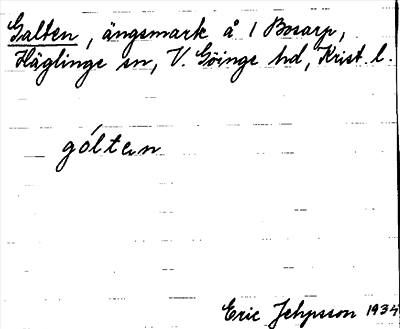 Galten, ängsmark å 1 Bosarp,
Häglinge sn, V. Göinge hd, Krist. l.
góltɐn
Eric Jehpsson 1934